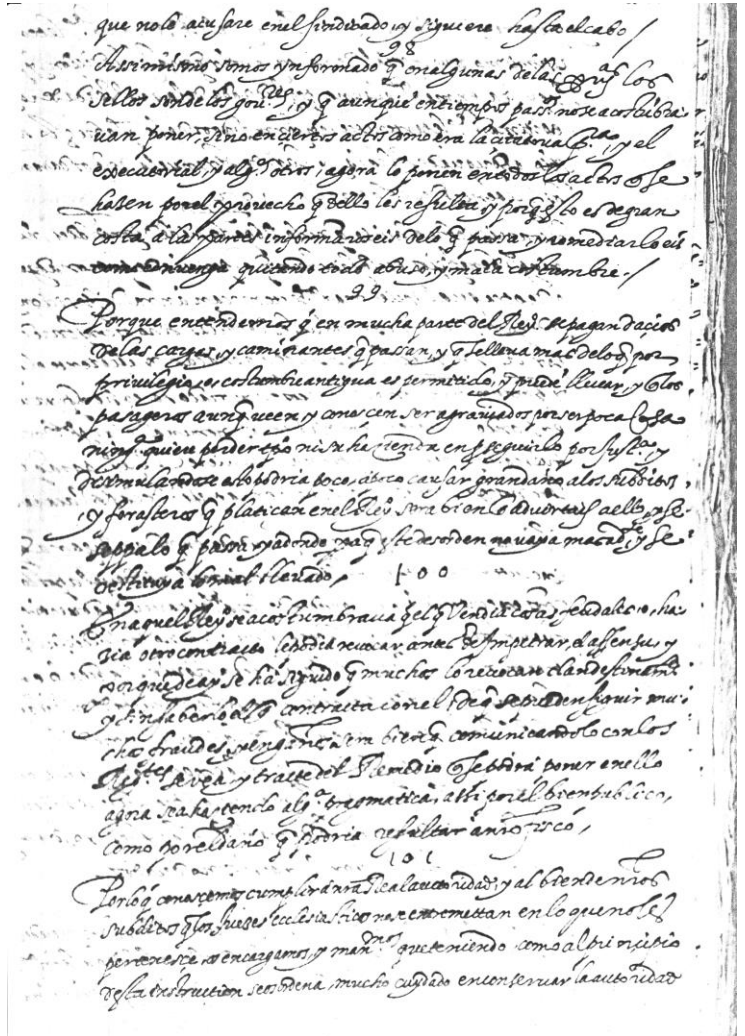 que no le acusare en el sindicado, y siguiere hasta el cabo /
98
Assimismo somos ynformado q̃ en algunas delas los
sellos son delos gou.res, y q̃ aunque en tiempos pass.os no se acostũbra-
uan poner, sino en ciertos actos como era la citatoria p.a, y el
executorial, y alg.os otros, agora lo ponen en todos los actos q̃ se
hazen por el prouecho q̃ dello les resulta, y porq̃ esto es de gran
costa a las partes informaros eis delo q̃ passa, y remediarlo eis
como conuenga quitando todo abuso, y mala costumbre. /
99
Porque entendemos q̃ en mucha parte del Rey.no se pagan dacios
delas cargas, y caminantes q̃ passan, y q̃ se lleua mas delo q̃ por
priuilegio, o costumbre antigua es permitido, y puede lleuar, y q̃ los
pasageros aunque en, y conoscen ser agrauiados por ser poca cosa
ning.o quiere perder tpõ ni su hazienda en seguirlo por just.a, y
dissimulandose esto podria poco a poco causar gran daño a los subditos,
y forasteros q̃ platican en el Rey.no sera bien q̃ aduertais a ello, y se
seppa lo q̃ passa, y adonde, paraq̃ este desorden no vaya mas ad.te, y se
restituya lo mal lleuado,
100
En aquel Rey.no se acostumbraua q̃ el q̃ vendia cosas feudales, o ha-
zia otro contracto le podia reuocar, antes de Impetrar el assensu, y
porque de ay se ha seguido q̃ muchos lo reuocan clandestinam.te
y sin saberlo el q̃ contracta con el, de q̃ se pueden seguir mu-
chos fraudes, y engaños, sera bien q̃ comunicandolo con los
Reg.tes se vea, y tracte del Remedio q̃ se podrá poner en ello
agora sea haziendo alg.a pragmatica, assi por el bien publico,
como por el daño q̃ podria resultar a nro fisco,
101
Por lo q̃ conoscemos cumplir a nra Real autoridad, y al bien de nros
subditos q̃ los juezes ecclesiasticos no se entremettan en lo que no les
pertenesce, os encargamos, y man.mos que teniendo como al principio
desta instruction se os ordena, mucho cuydado en conseruar la autoridad